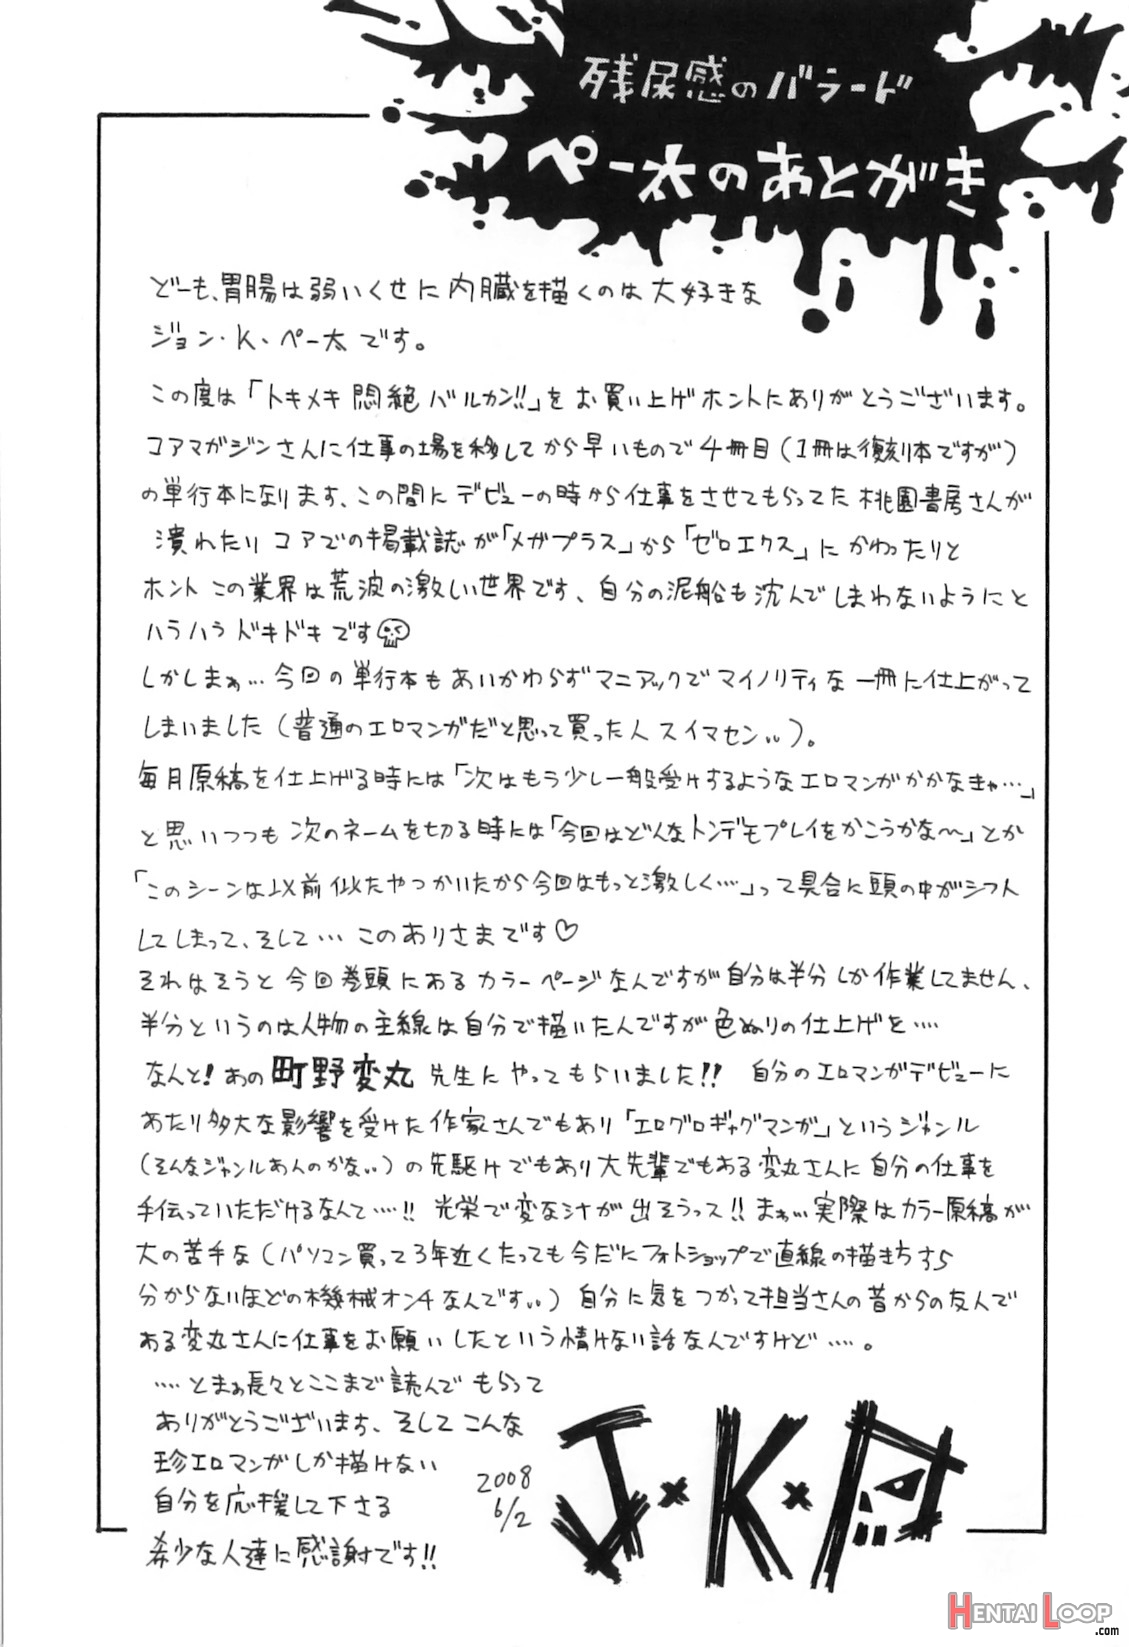 残尿感のバラード
ペー太のあとがき
どーも、胃腸は弱いくせに内臓を描くのは大好きな
ジョン・K・ペー太です。
この度は「トキメキ悶絶バルカン!!」をお買い上げホントにありがとうございます。
コアマガジンさんに仕事の場を移してから早いもので4冊目(1冊は復刻本ですが)
の単行本になります、この間にデビューの時から仕事をさせてもらってた桃園書房さんが
潰れたりコアでの掲載誌が「メガプラス」から「ゼロエクス」にかわったりと
ホントこの業界は荒波の激しい世界です、自分の泥船も沈んでしまわないようにと
ハラハラドキドキです
しかしまぁ…今回の単行本もあいかわらずマニアックでマイノリティな一冊に仕上がって
しまいました(普通のエロマンガだと思って買った人スイマセン‥)。
毎月原稿を仕上げる時には「次はもう少し一般受けするようなエロマンガかかなきゃ…」
と思いつつも次のネームを切る時には「今回はどんなトンデモプレイをかこうかな〜」とか
「このシーンは以前似たやつかいたから今回はもっと激しく…」って具合に頭の中がシフト
してしまって、そして…このありさまです♡
それはそうと今回巻頭にあるカラーページなんですが自分は半分しか作業してません、
半分というのは人物の主線は自分で描いたんですが色ぬりの仕上げを‥‥
なんと!あの町野変丸先生にやってもらいました!!自分のエロマンガデビューに
あたり多大な影響を受けた作家さんでもあり「エログロギャグマンガ」というジャンル
(そんなジャンルあんのかな‥)の先駆けでもあり大先輩でもある変丸さんに自分の仕事を
手伝っていただけるなんて‥‥!!光栄で変な汁が出そうっス!!まぁ…実際はカラー原稿が
大の苦手な(パソコン買って3年近くたっても今だにフォトショップで直線の描き方すら
分からないほどの機械オンチなんです‥)自分に気をつかって担当さんの昔からの友人で
ある変丸さんに仕事をお願いしたという情けない話なんですけど‥‥。
‥‥とまぁ長々とここまで読んでもらって
ありがとうございます、そしてこんな
珍エロマンガしか描けない
自分を応援して下さる
希少な人達に感謝です!!
2008
6/2
J×K×P
HENTAI LOOP
.com